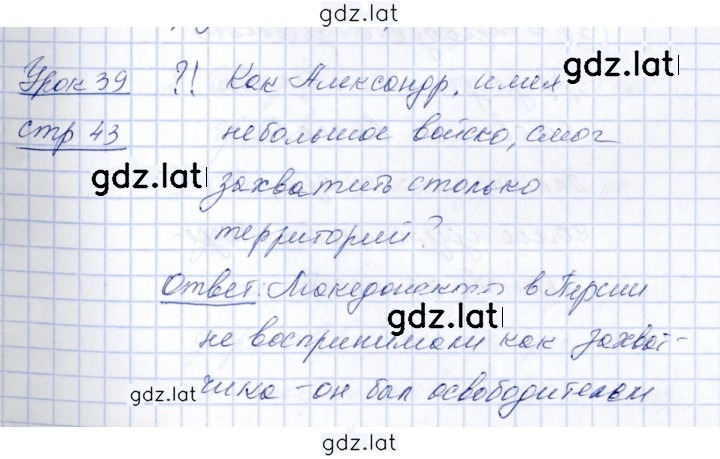 gdz.lat
Урок 39 ?! Как Александр, имея
gdz.lat
стр 43 небольшое войско, смог
gdz.lat
захватить столько
территорий?
Ответ: в Персии
gdz.lat
не воспринимали как захват-
gdz.lat
чика - он был освободителем
gdz.lat